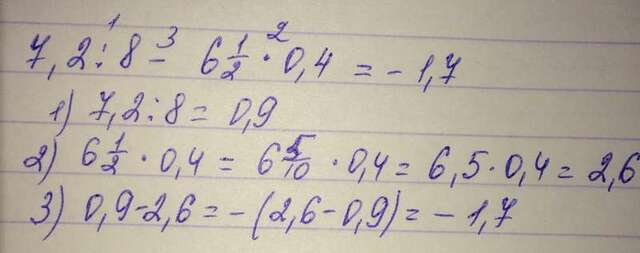 7,2 : 8 - 6 1/2 · 0,4 = - 1,7
1) 7,2 : 8 = 0,9
2) 6 1/2 · 0,4 = 6 5/10 · 0,4 = 6,5 · 0,4 = 2,6
3) 0,9 - 2,6 = - (2,6 - 0,9) = - 1,7